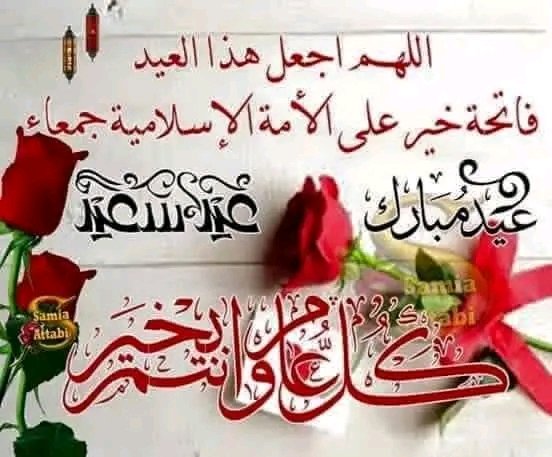 اللهم اجعل هذا العيد
فاتحة خير على الأمة الإسلامية جمعاء
عيد مُبارك
عيد سعيد
كل عام وانتم بخير
Samia
Attabi
Samia
Attabi